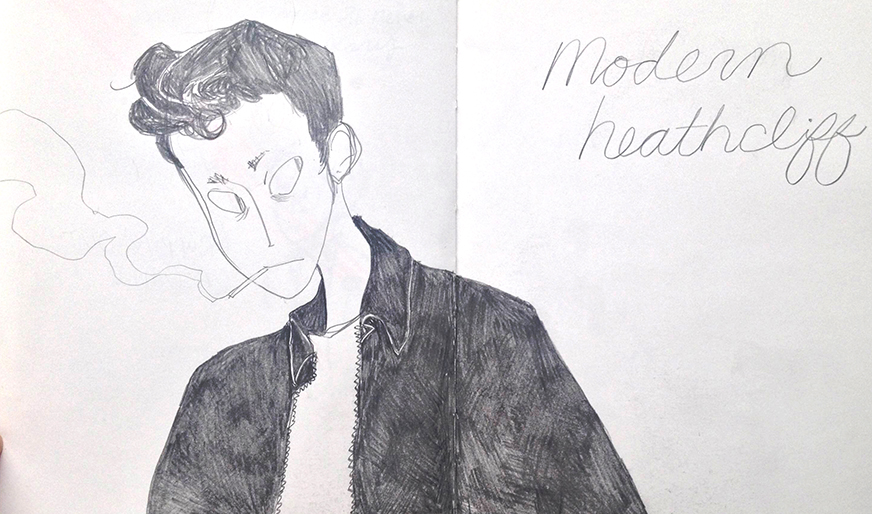 modern
heathcliff